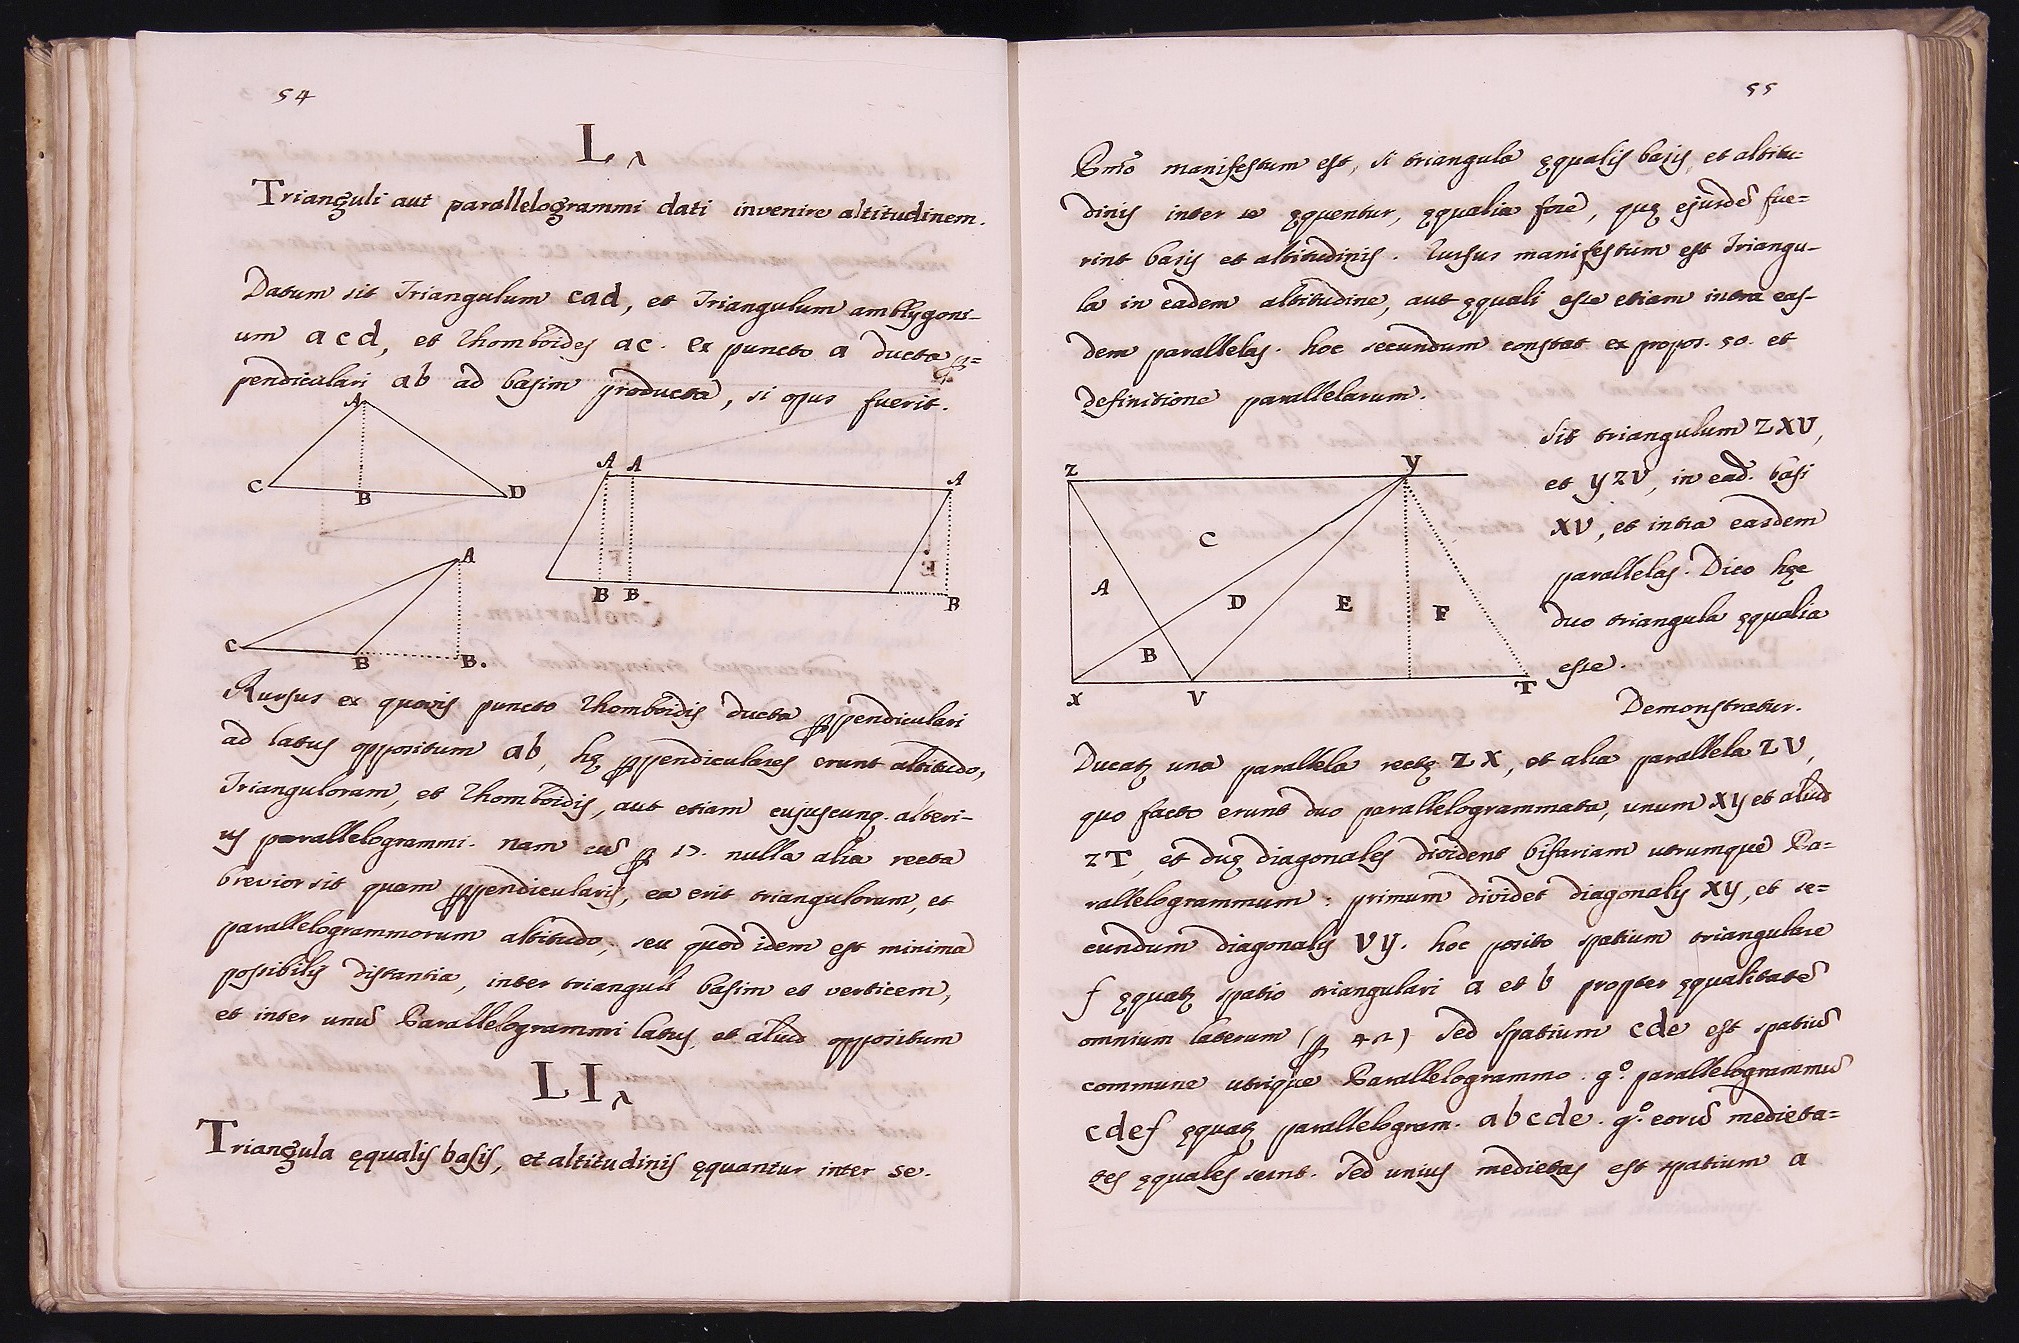 54
L
Trianguli aut parallelogrammi dati invenire altitudinem.
Datum sit Triangulum cad, et Triangulum amblygoni-
um acd, et Rhomboides ac. ex puncto a ducta p=
pendiculari ab ad basim productã, si opus fuerit.
A
C B D
A A A
B B B
A
C B B.
Rursus ex quovis puncto Rhomboidis ducta ppendiculari
ad latus oppositum ab, hę ppendiculares erunt altitudo,
Triangulorum, et Rhomboidis, aut etiam cujuscunq. alteri-
us parallelogrammi. nam cũ p 17. nulla alia recta
brevior sit quam ppendicularis, ea erit triangulorum, et
parallelogrammorum altitudo, seu quod idem est minima
possibilis distantia, inter trianguli basim et verticem,
et inter unũ Parallelogrammi latus, et aliud oppositum
LI
Triangula ęqualis basis, et altitudinis ęquantur inter se.
55
Primò manifestum est, si triangula ęqualis basis, et altitu-
dinis inter se ęquentur, ęqualia fore, quę ejusdẽ fue=
rint basis et altitudinis. Rursus manifestum est Triangu-
la in eadem altitudine, aut ęquali esse etiam intra eas-
dem parallelas. hoc secundum constat ex propos. 50. et
definitione parallelarum.
Sit triangulum ZXV,
et YZV, in eãd. basi
XV, et intra easdem
parallelas. Dico hęc
duo triangula ęqualia
esse.
Z Y
C
A
D E F
B
X V T
Demonstratur.
Ducatʒ una parallela rectę ZX, et alia parallela ZV,
quo facto erunt duo parallelogrammata, unum XY et aliud
ZT, et duę diagonales dividént bifariam utrumque Pa=
rallelogrammum: primum dividet diagonalis XY, et se=
cundum diagonalis VY. hoc posito spatium triangulare
f ęquatʒ spatio triangulari a et b propter ęqualitatẽ
omnium laterum (p 42) Sed spatium cde est spatiũ
commune utrique Parallelogrammo. gº. parallelogrammũ
cdef ęquatʒ parallelogram. abcde. gº. eorũ medieta=
tes ęquales sunt. Sed unius medietas est spatium a